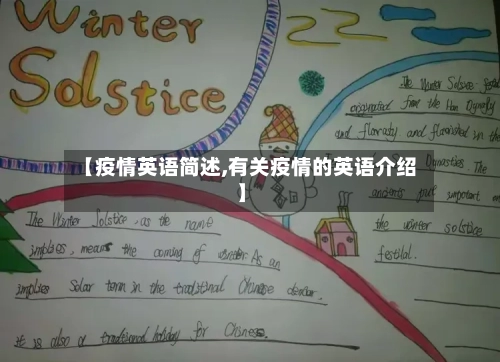 Winter
Solstice
The Winter Solstice
originated from the Han Dynasty
and flourished in the
Dynasties. The
ancients put important on
the winter solstice
festival.
【疫情英语简述,有关疫情的英语介绍
】
The Winter Solstice, as the name
implies, means the coming of winter. As an
implies Solar term in the traditional Chinese
it is also a traditional holiday for Chinese.